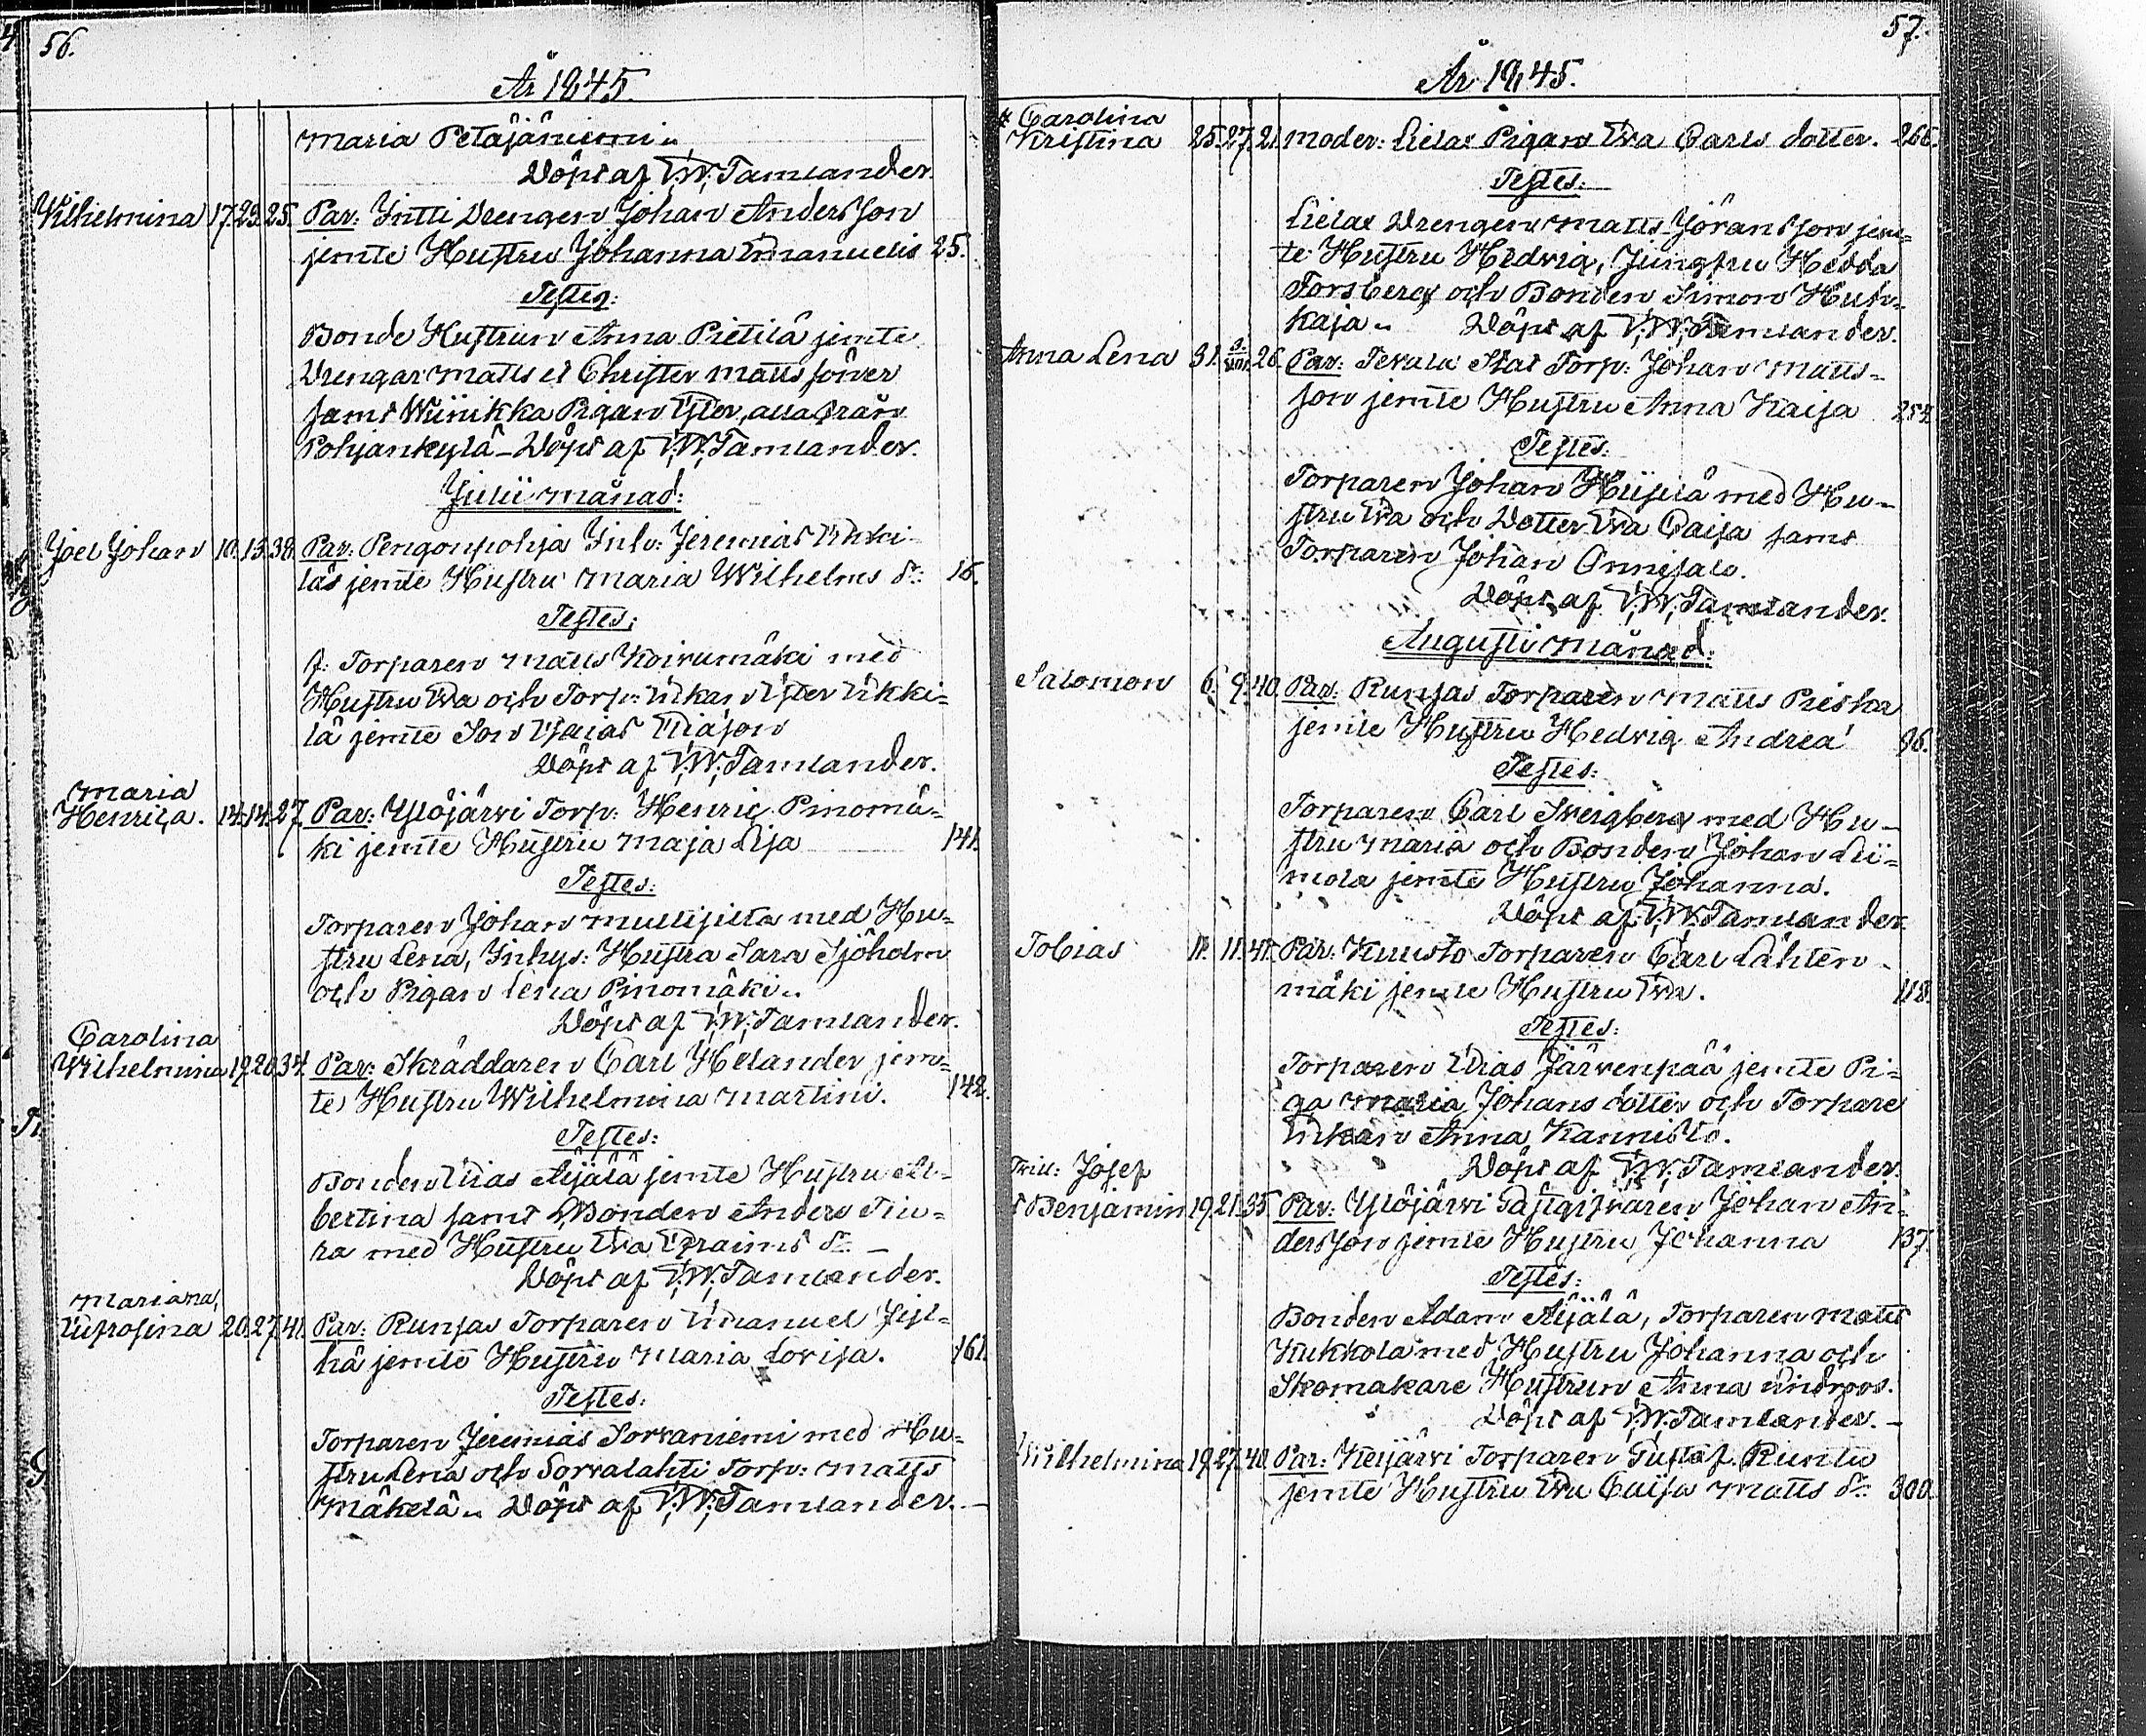 56.
År 1845.
Maria Petäjäniemi
Döpt af I:W:Tamlander.
Wilhelmina 17. 29. 25. Par: Yntti Drengen Johan Andersson
jemte Hustru Johanna Emanuels 25.
Testes:
Bonde Hustrun Anna Pietilä jemte
Drengar Matts et Christer Matts söner
samt Pigan alla från
Pohjankylä – Döpt af I:W:Tamlander.
Julii Månad:
Joel Johan 10. 13. 38. Par: Pengonpohja Inh: Jeremias Ukki-
läs jemte Hustru Maria Wilhelms dr: 16.
Testes:
f: Torparen Matts Koivumäki med
Hustru Eva och Torp: Enkan Ester Ukki=
lä jemte Son Esaias Eliason
Döpt af I:W:Tamlander.
Maria
Henrica. 14. 14. 27. Par: Ylöjärvi Torp: Henric Pinomä=
ki jemte Hustru Maja Lisa 141.
Testes:
Torparen Johan Mullisilta med Hu=
stru Lena, Inhys: Hustru Sara Sjöholm
och Pigan Lena Pinomäki
Döpt af I:W:Tamlander.
Carolina
Wilhelmina 19. 20. 34. Par: Skräddaren Carl Helander jem=
te Hustru Wilhelmina Martini. 142.
Testes:
Bonden Elias Äijälä jemte Hustru Al-
bertina samt Bonden Anders Tiu=
ra med Hustru Eva Efraims dr –
Döpt af I:W:Tamlander.
Mariana,
Eufrosina 20. 27. 41. Par: Runsas Torparen Emanuel
hä jemte Hustru Maria Lovisa. 161.
Testes:
Torparen Jeremias Sorvaniemi med Hu=
stru Lena och Sorvalahti Torp: Matts
Mäkelä Döpt af I:W:Tamlander. –
57.
År 1845.
* Carolina
Kristina 25. 27. 21. Moder: Lielax Pigan Eva Carls dotter. 266.
Testes:
Lielax Drengen Matts Jöransson jem=
te Hustru Hedvig, Jungfru Hedda
Forsberg och Bonden Simon Huh=
kaja Döpt af I:W:Tamlander.
Anna Lena 31. 3. 26. Par: Tevala Stat Torp: Johan Matts=
son jemte Hustru Anna Kaisa 254.
Testes:
Torparen Johan med Hu-
stru Eva och Dotter Eva Caisa samt
Torparen Johan Onnisalo.
Döpt af I:W:Tamlander.
Augusti Månad:
Salomon 6. 9. 40. Par: Runsas Torparen Matts Priska
jemte Hustru Hedvig Andreæ 96.
Testes:
Torparen Carl Sveigberg med Hu-
stru Maria och Bonden Johan Lii=
mola jemte Hustru Johanna.
Döpt af I:W:Tamlander.
Tobias 11. 11. 41. Par: Kuusto Torparen Carl Lähten-
mäki jemte Hustru Eva. 118.
Testes:
Torparen Elias Järvenpää jemte Pi=
ga Maria Johans dotter och Torpare
Enkan Anna Kannisto.
Döpt af I:W:Tamlander.
Trill: Josef
& Benjamin 19. 21. 35. Par: Ylöjärvi Gästgifvaren Johan An=
dersson jemte Hustru Johanna 137.
Testes:
Bonden Adam Äijälä, Torparen Matts
Kukkola med Hustru Johanna och
Skomakare Hustrun Anna Lindroos.
Döpt af I:W:Tamlander. –
Wilhelmina 19. 27. 40. Par: Keijärvi Torparen Gustaf Runtu
jemte Hustru Eva Caisa Matts dr: 300.